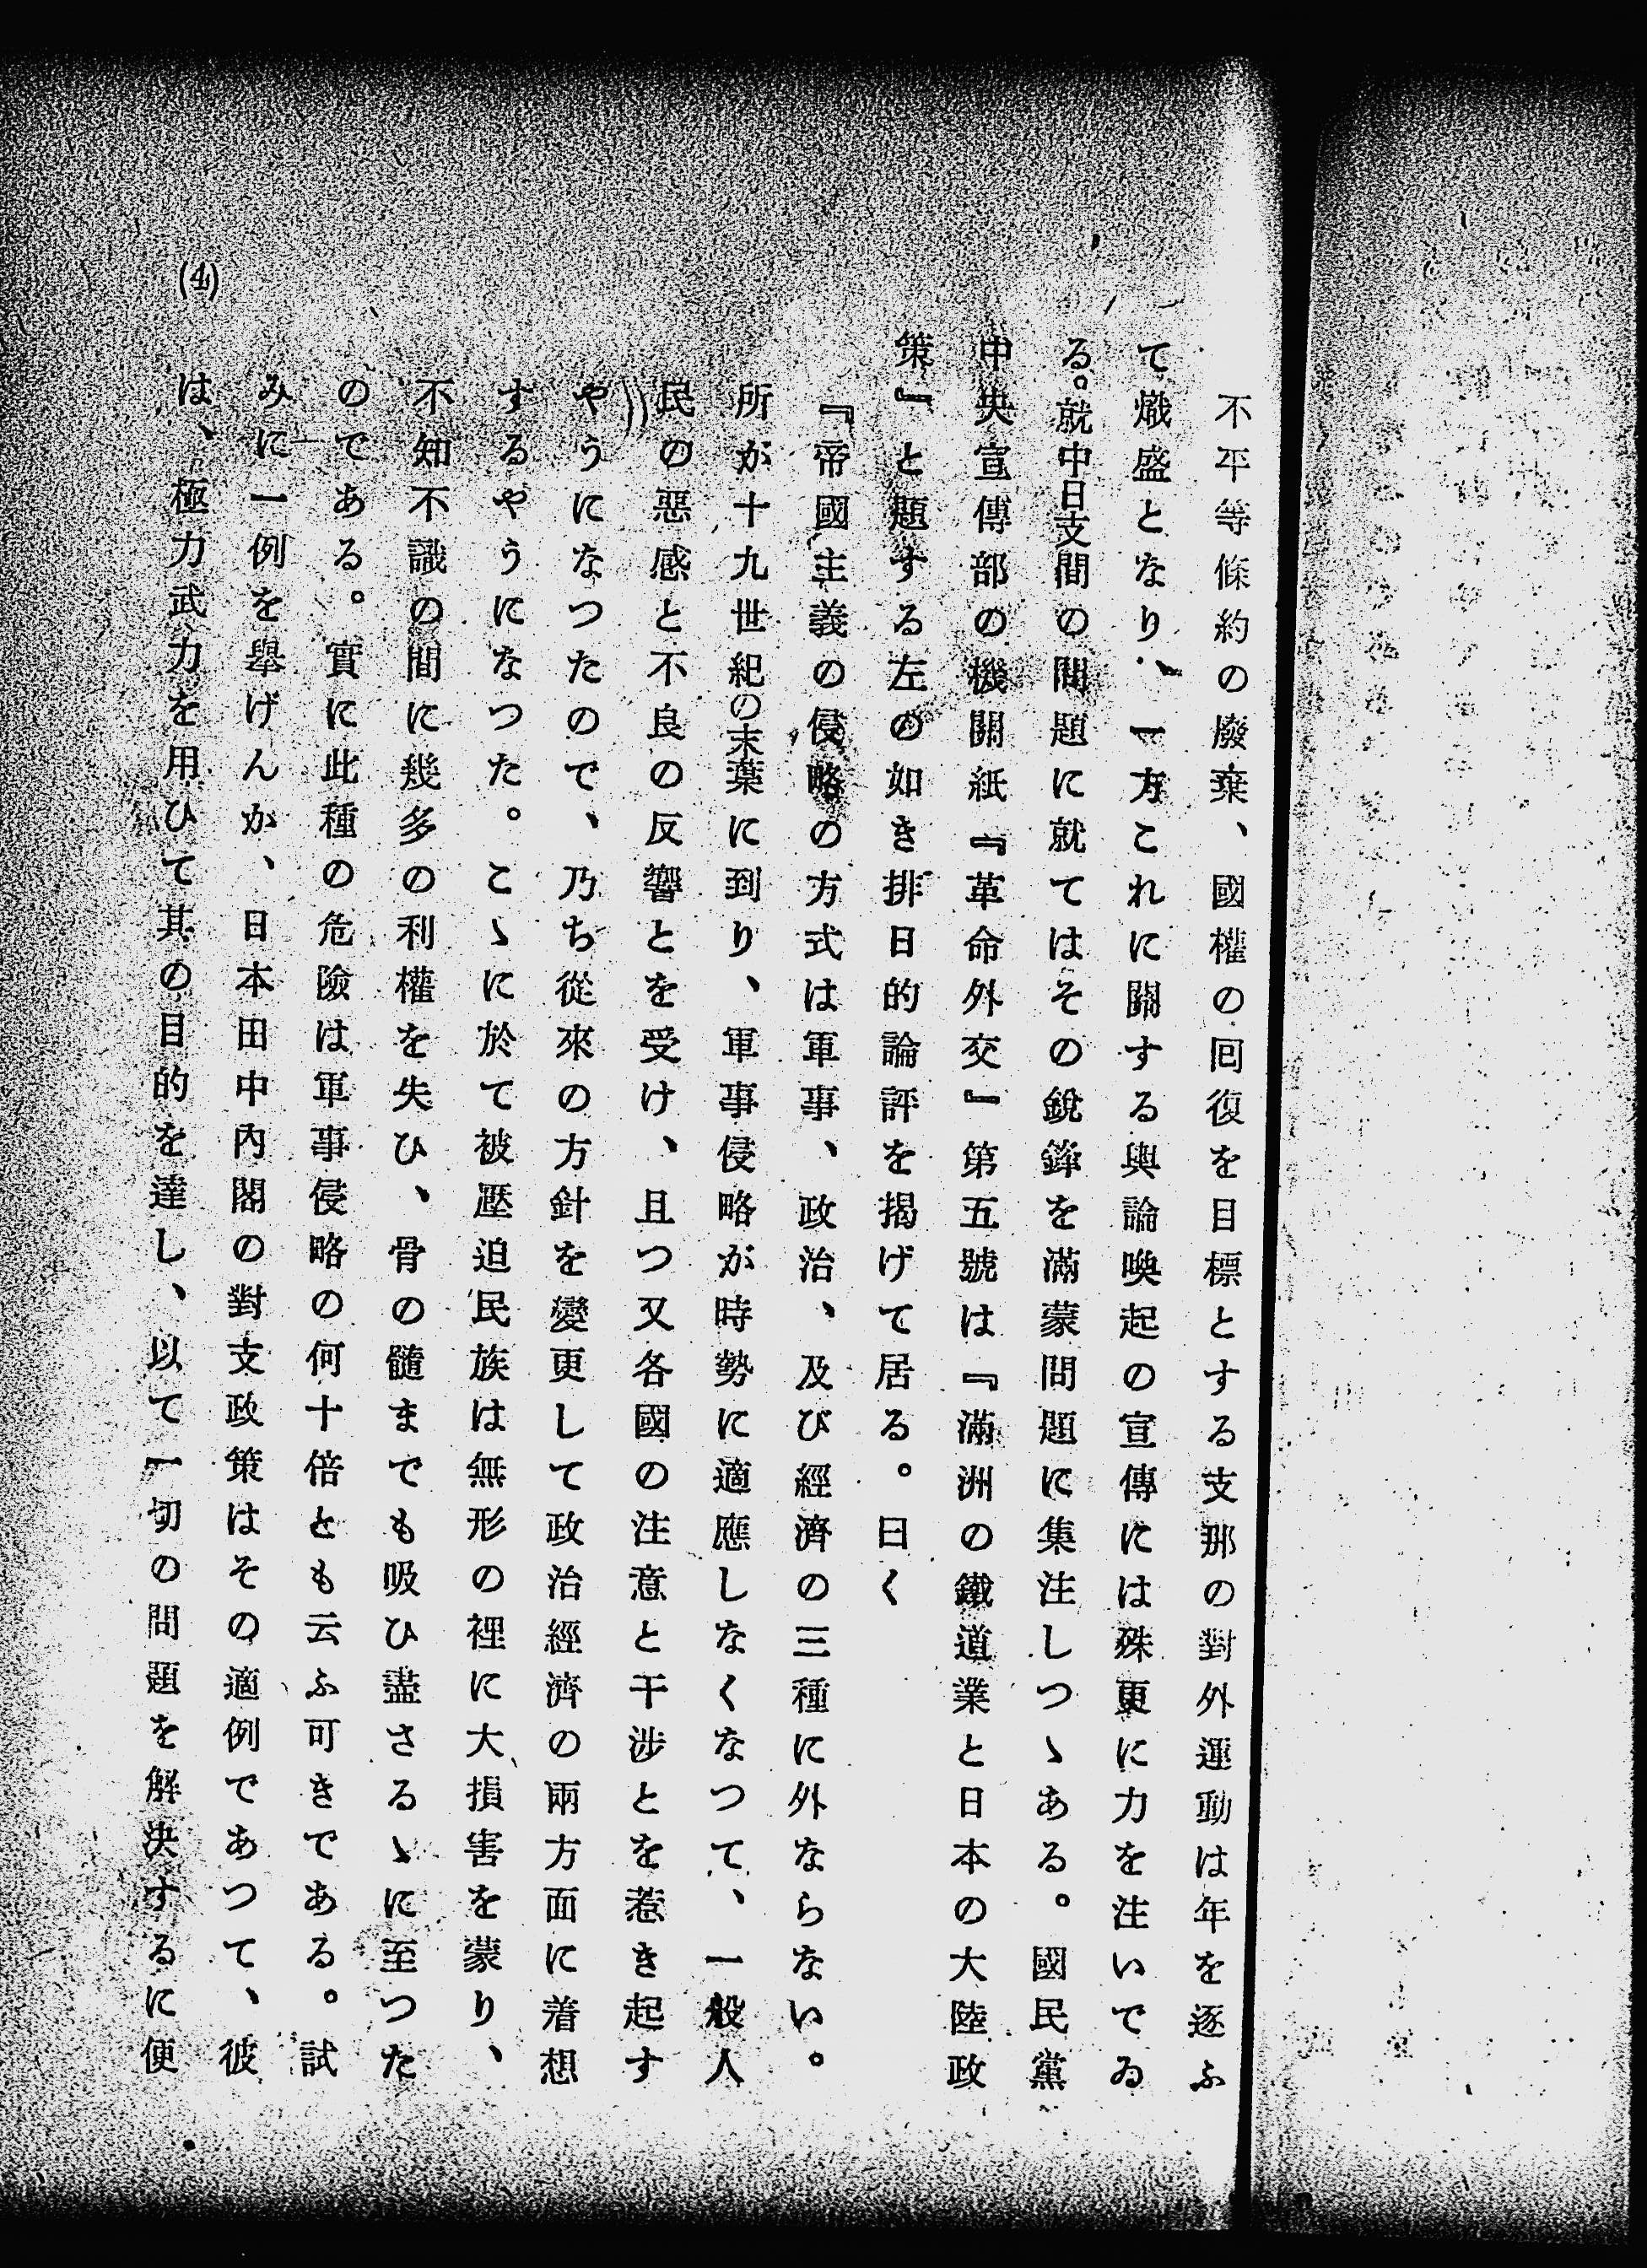 不平等條約の廢棄、國權の囘復を目標とする支那の對外運動は年を逐ふ
て熾盛となり、一方これに關する輿論喚起の宣傳には殊更に力を注いでゐ
る。就中日支間の問題に就てはその銳鋒を滿蒙問題に集注しつゝある。國民黨
中央宣傳部の機關紙『革命外交』第五號は『滿洲の鐵道業と日本の大陸政
策』と題する左の如き排日的論評を揭げて居る。曰く
『帝國主義の侵略の方式は軍事、政治、及び經濟の三種に外ならない。
所が十九世紀の末葉に到り、軍事侵略が時勢に適應しなくなつて、一般人
民の惡感と不良の反響とを受け、且つ又各國の注意と干涉とを惹き起す
やうになつたので、乃ち從來の方針を變更して政治經濟の兩方面に着想
するやうになつた。こゝに於て被壓迫民族は無形の裡に大損害を蒙り、
不知不識の間に幾多の利權を失ひ、骨の髓までも吸ひ盡さるゝに至つた
のである。實に此種の危險は軍事侵略の何十倍とも云ふ可きである。試
みに一例を擧げんか、日本田中內閣の對支政策はその適例であつて、彼
は、極力武力を用ひて其の目的を達し、以て一切の問題を解決するに便
(4)